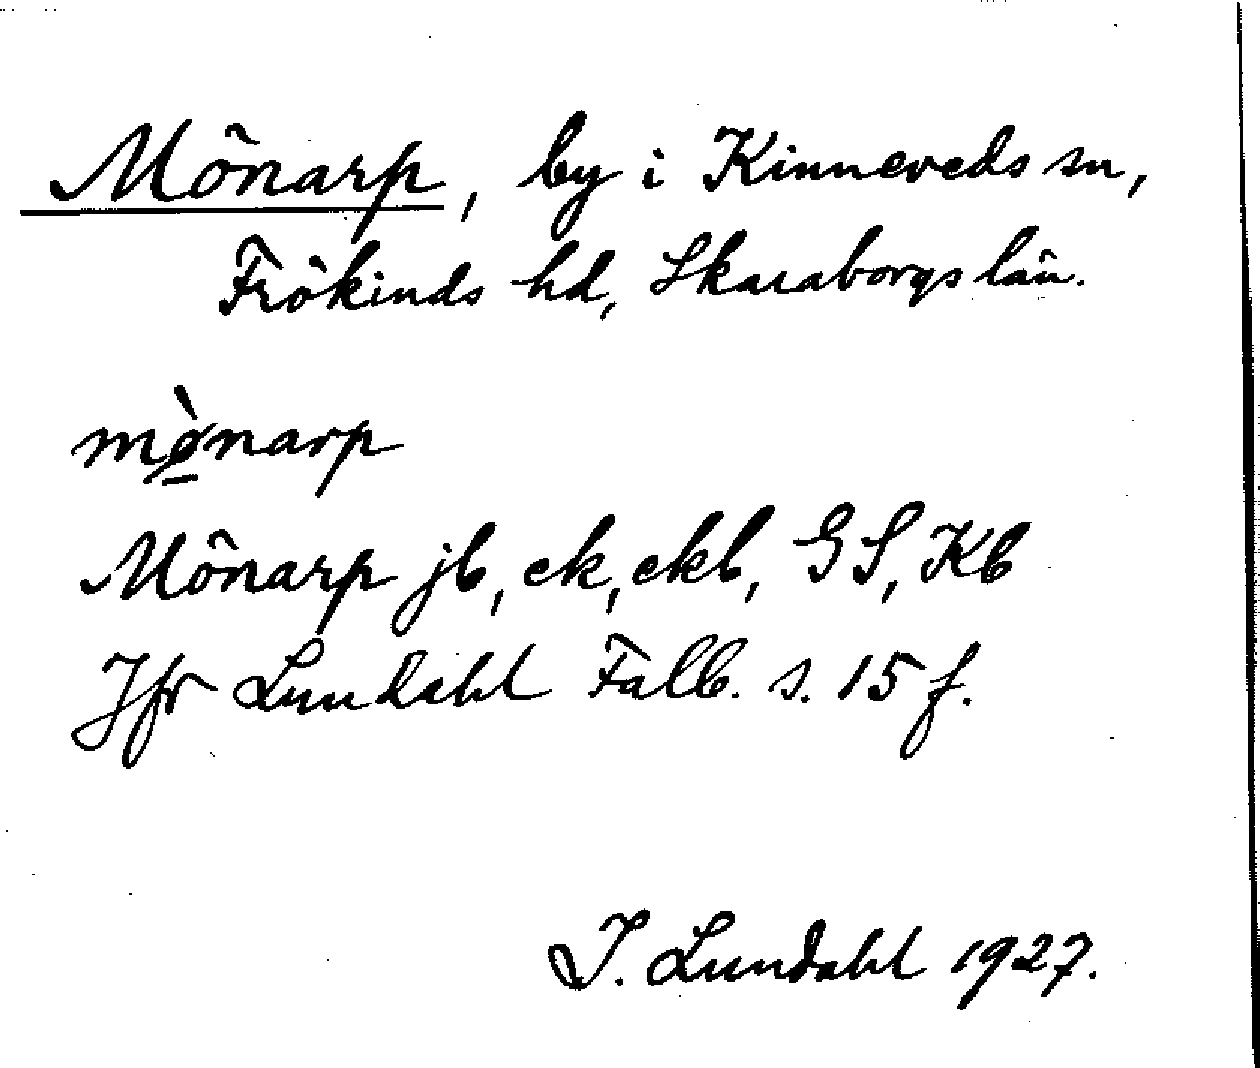 Mönarp, by i Kinneveds sn,
Frökinds hd, Skaraborgs län.
mø̀narp
Mönarp jb, ek, ekb, GS, Kb
Jfr Lundahl Falb. s. 15 f.
I. Lundahl 1927.